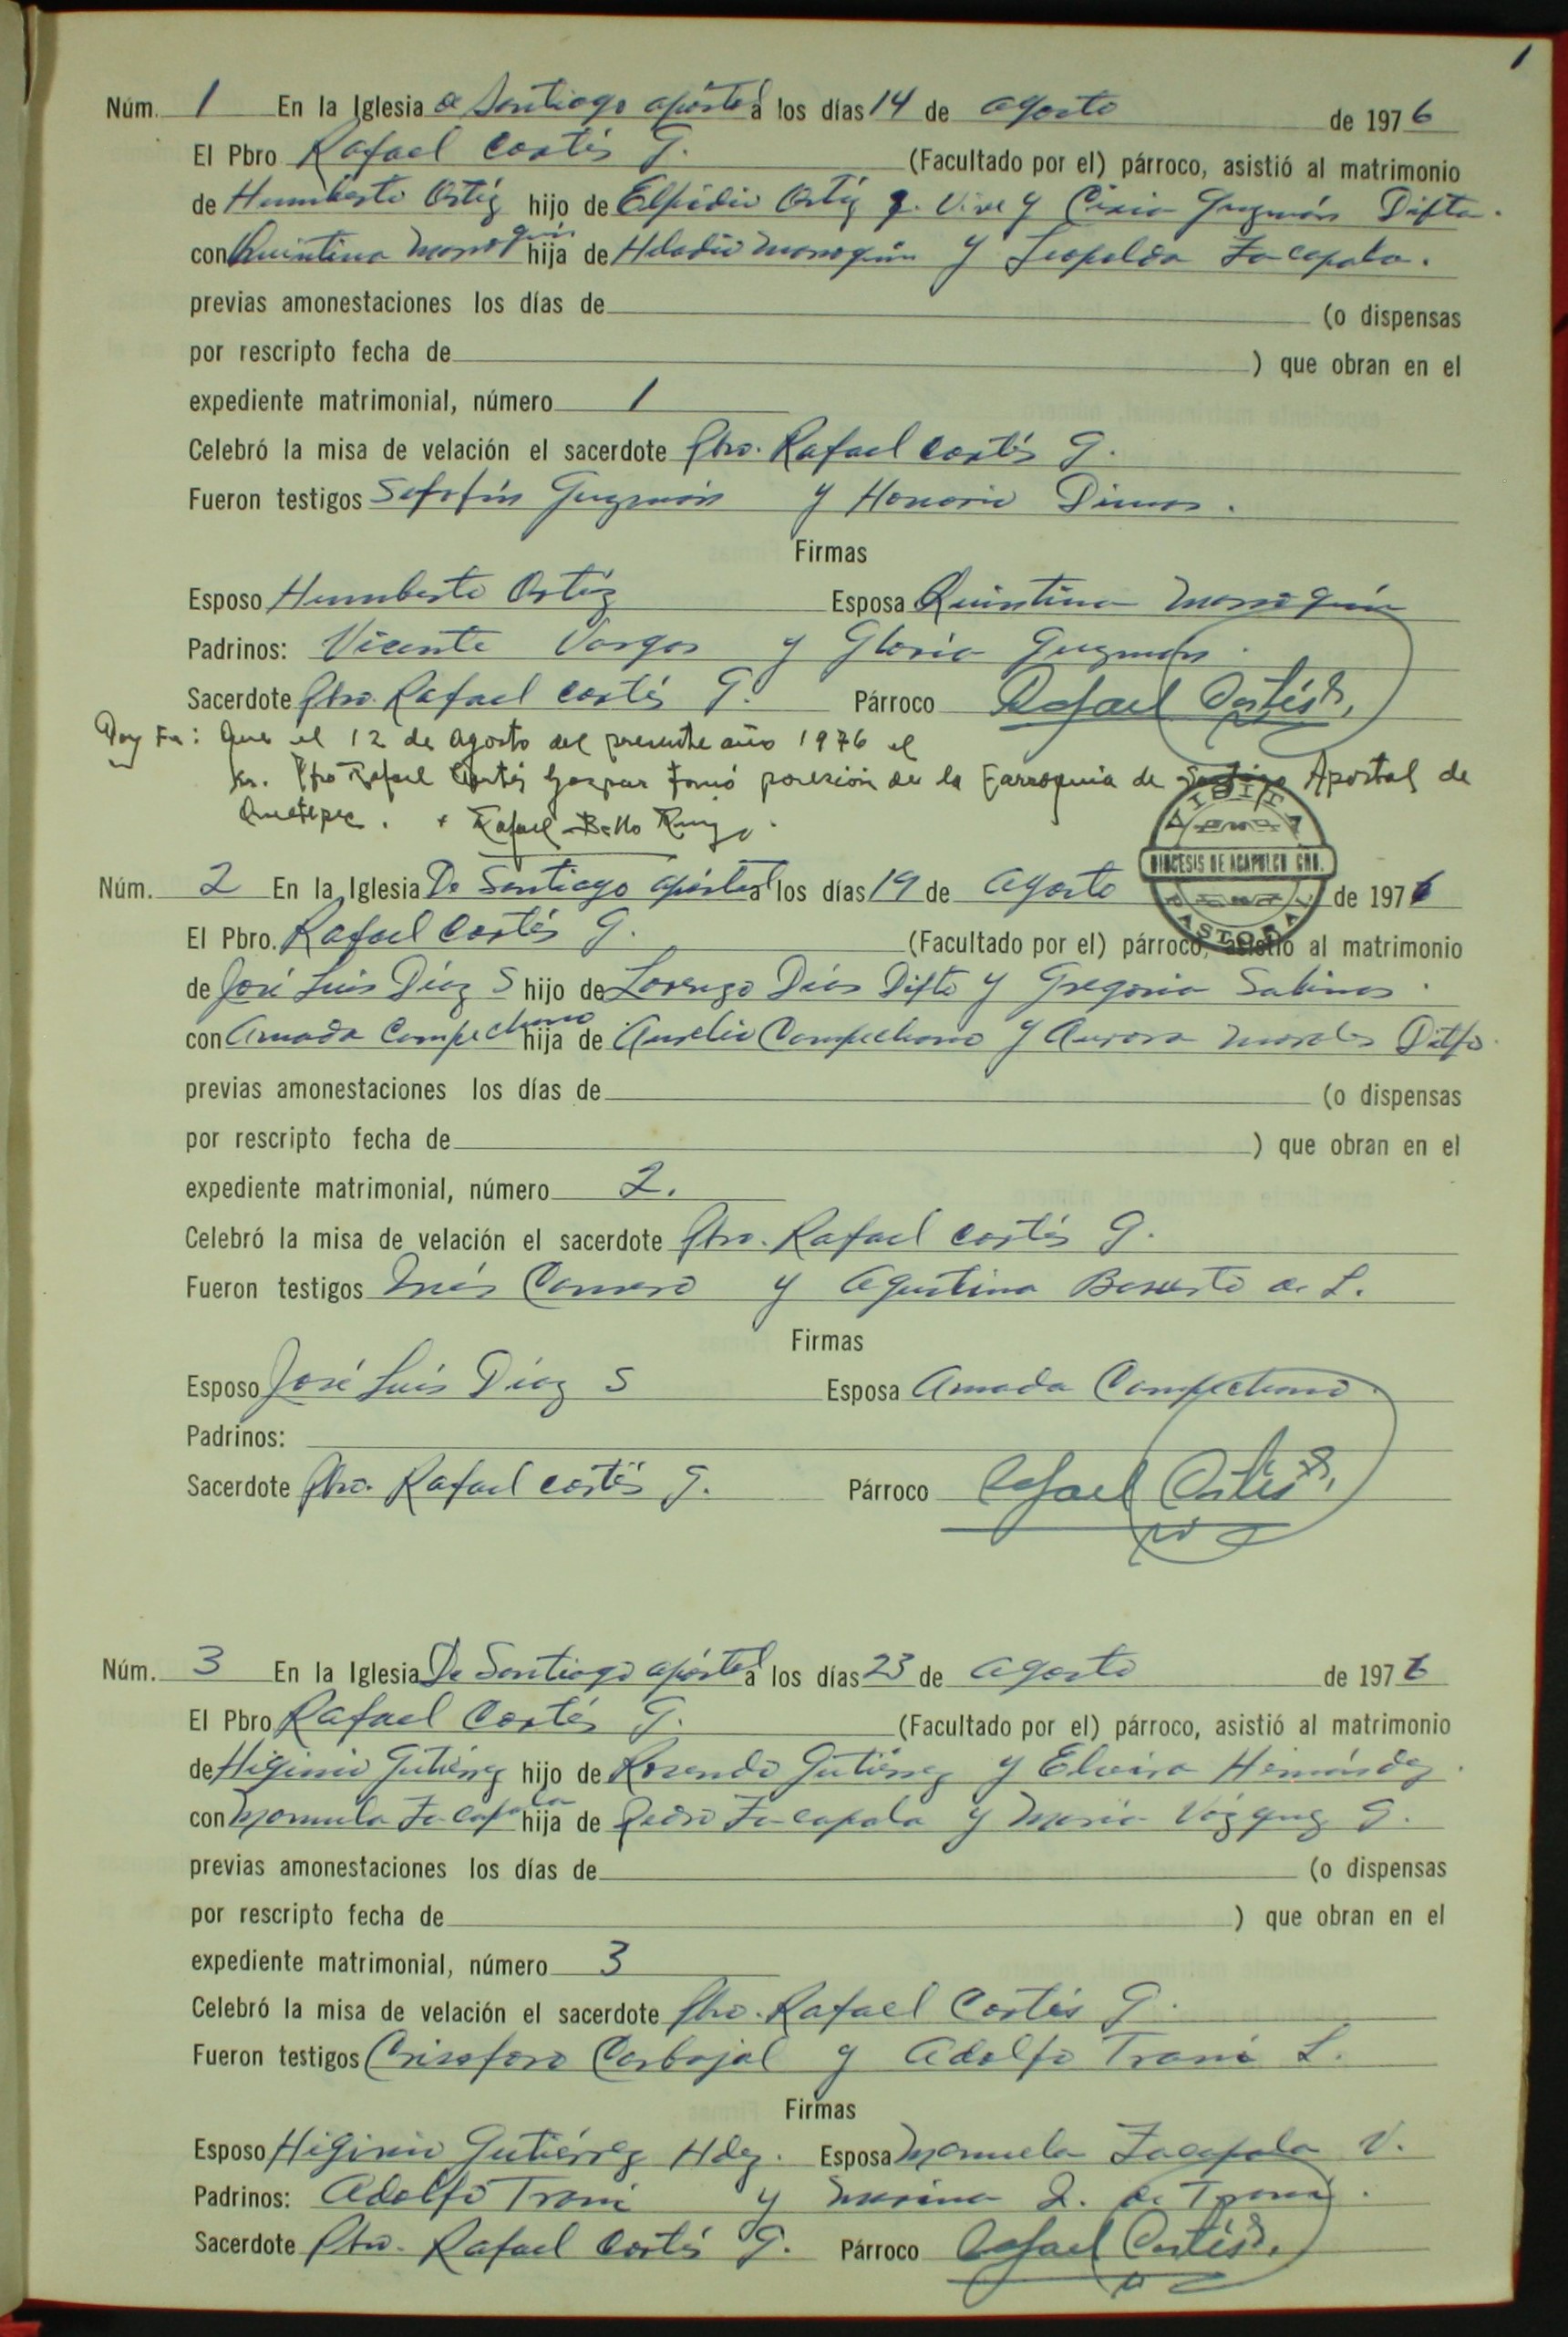 1
Núm. 1 En la Iglesia de Santiago apóstol a los días 14 de agosto de 1976
El Pbro Rafael Cortés G. (Facultado por el) párroco, asistió al matrimonio
de Humberto Ortíz hijo de Elpidio Ortíz q. vive y Guzmán Difta.
con Quintina Marroquín hija de Heladio Marroquín y Leopolda Zacapala.
previas amonestaciones los días de (o dispensas
por rescripto fecha de ) que obran en el
expediente matrimonial, número 1
Celebró la misa de velación el sacerdote Pbro. Rafael Cortés G.
Fueron testigos Guzmán y Honorio
Firmas
Esposo Humberto Ortíz Esposa Quintina Marroquín
Padrinos: Vicente Vargas y Gloria Guzmán.
Sacerdote Pbro. Rafael Cortés G. Párroco Rafael Cortés G.
Doy Fe: Que el 12 de Agosto del presente año 1976 el
Sr. Pbro Rafael Cortés Gaspar tomó posesión de la Parroquia de Santiago Apostol de
+ Rafael Bello Ruiz
VISITA
DIOCESIS DE ACAPULCO GRO.
PASTORAL
Núm. 2 En la Iglesia De Santiago apóstol a los días 19 de agosto de 1976
El Pbro. Rafael Cortés G. (Facultado por el) párroco, asistió al matrimonio
de José Luis Díaz S hijo de Lorenzo Días Difto y Gregoria Salinas.
con Amada Campechano hija de Aurelio Campechano y Aurora Morales
previas amonestaciones los días de (o dispensas
por rescripto fecha de ) que obran en el
expediente matrimonial, número 2.
Celebró la misa de velación el sacerdote Pbro. Rafael Cortés G.
Fueron testigos Inés y Agustina de L.
Firmas
Esposo José Luis Díaz S Esposa Amada Campechano.
Padrinos:
Sacerdote Pbro. Rafael Cortés G. Párroco Rafael Cortés G.
Núm. 3 En la Iglesia De Santiago apóstol a los días 23 de agosto de 1976
El Pbro Rafael Cortés G. (Facultado por el) párroco, asistió al matrimonio
de Higinio Gutiérrez hijo de Rosendo Gutiérrez y Elvira Hernández.
con Manuela Zacapala hija de Pedro Zacapala y María Vázquez G.
previas amonestaciones los días de (o dispensas
por rescripto fecha de ) que obran en el
expediente matrimonial, número 3
Celebró la misa de velación el sacerdote Pbro. Rafael Cortés G.
Fueron testigos Crisoforo Carbajal y Adolfo Trani L.
Firmas
Esposo Higinio Gutiérrez Hdez. Esposa Manuela Zacapala V.
Padrinos: Adolfo Trani y Marina de Trani.
Sacerdote Pbro. Rafael Cortés G. Párroco Rafael Cortés G.